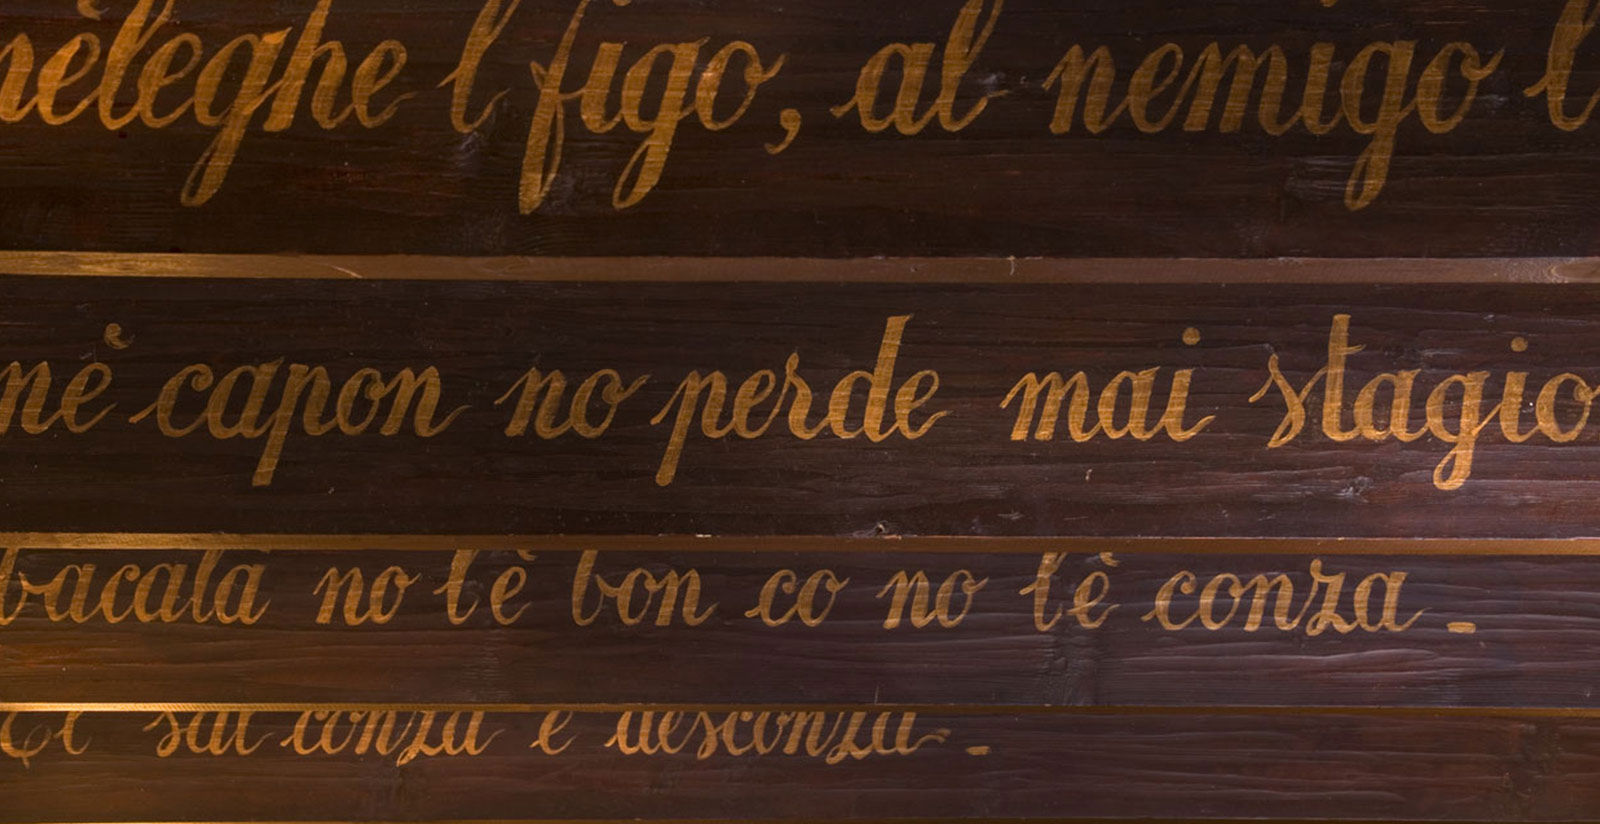 pèleghe l figo, al nemigo l
nè capon no perde mai stagio
bacalà no l'è bon co no l'è conza -
El sal conza e desconza -